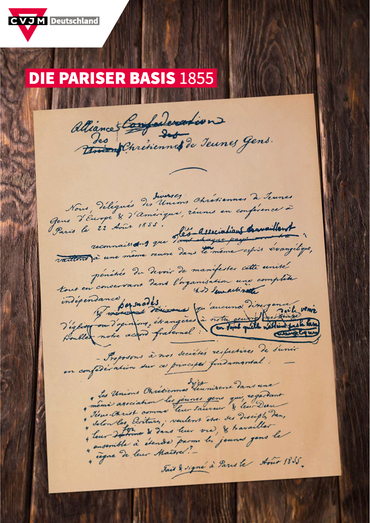 CVJM Deutschland
DIE PARISER BASIS 1855
Alliance Confédération
des des
Chrétiennes de Jeunes Gens.
Nous, délégués des diverses Unions Chrétiennes de Jeunes
Gens d'Europe & d'Amérique, réunis en conférence à
Paris le 22 Août 1855.
reconnaissant que les Associations travaillant
à une même œuvre dans le même esprit évangélique,
pénétrés du devoir de manifester cette unité
tout en conservant dans l'organisation une complète
indépendance,
persuadés qu'aucune divergence
d'opinions étrangères à
notre accord fraternel
Proposons à nos sociétés respectives de s'unir
en confédération sur ce principe fondamental :
Les Unions Chrétiennes dans une
même association les jeunes gens qui regardant
Jésus-Christ comme leur Sauveur & leur Dieu
selon les Écritures, veulent être ses disciples dans
leur foi & dans leur vie, & travailler
ensemble à étendre parmi les jeunes gens le
règne de leur Maître.
Fait & signé à Paris le Août 1855.